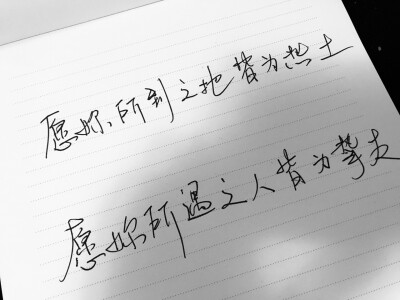 愿你所到之地皆为热土
愿你所遇之人皆为挚友